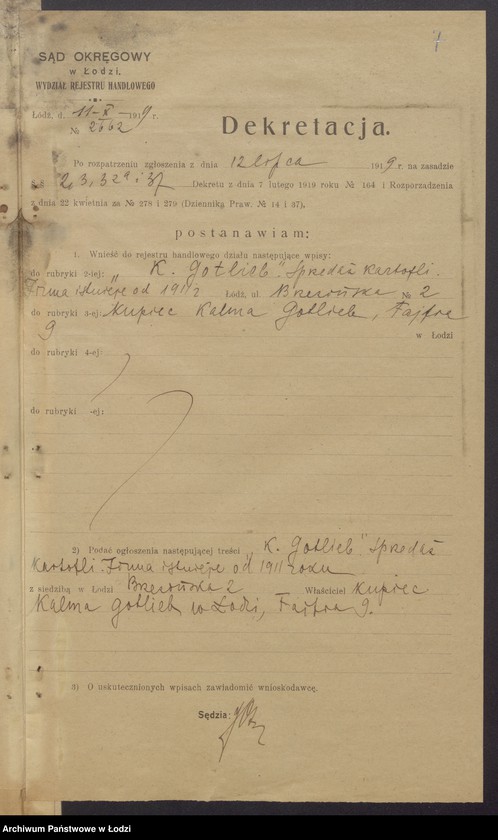 SĄD OKRĘGOWY
w Łodzi,
WYDZIAŁ REJESTRU HANDLOWEGO
Łódź, d. 11-X- 1919 r.
№ 2562
Dekretacja.
Po rozpatrzeniu zgłoszenia z dnia 12 lipca 1919 r. na zasadzie
2, 3, 32a i 37 Dekretu z dnia 7 lutego 1919 roku № 164 i Rozporządzenia
z dnia 22 kwietnia za № 278 i 279 (Dziennik Praw. № 14 i 37).
postanawiam:
1. Wnieść do rejestru handlowego działu następujące wpisy:
do rubryki 2-iej: „K. Gotlieb". Sprzedaż kartofli.
Firma istnieje od 1911 r Łódź, ul Brzezińska № 2
do rubryki 3-ej: Kupiec Kalma Gotlieb, Fajfra
9 w Łodzi
do rubryki 4-ej:
do rubryki -ej:
2) Podać ogłoszenia następującej treści „K. Gotlieb". Sprzedaż
kartofli. Firma istnieje od 1911 roku
z siedzibą w Łodzi Brzezińska 2 Właściciel kupiec
Kalma Gotlieb w Łodzi, Fajfra 9.
3) O uskutecznionych wpisach zawiadomić wnioskodawcę.
Sędzia:
Archiwum Państwowe w Łodzi